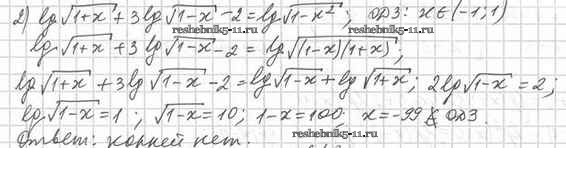 2) lg√(1+x) + 3lg√(1-x) - 2 = lg√(1-x²); ОДЗ: x ∈ (-1; 1)
reshebnik5-11.ru
lg√(1+x) + 3lg√(1-x) - 2 = lg√((1-x)(1+x));
lg√(1+x) + 3lg√(1-x) - 2 = lg√(1-x) + lg√(1+x); 2lg√(1-x) = 2;
lg√(1-x) = 1; √(1-x) = 10; 1-x = 100; x = -99 ∉ ОДЗ.
reshebnik5-11.ru
Ответ: корней нет.